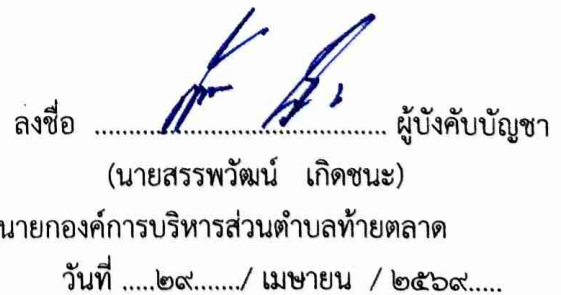 ลงชื่อ ........................................ ผู้บังคับบัญชา
(นายสรรพวัฒน์ เกิดชนะ)
นายกองค์การบริหารส่วนตำบลท้ายตลาด
วันที่ .....๒๙......./ เมษายน / ๒๕๖๙.....